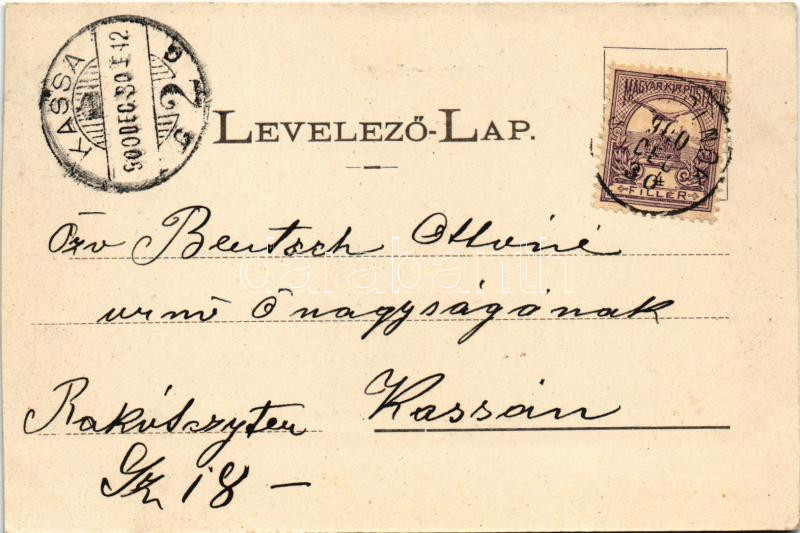 KASSA
900 DEC. 30
LEVELEZŐ-LAP.
MAGYAR KIR. POSTA
FILLÉR
Özv Bentsch Ottóné
urnő Ő nagyságának
Kassán
Rakótszyter
18 –
darabanth